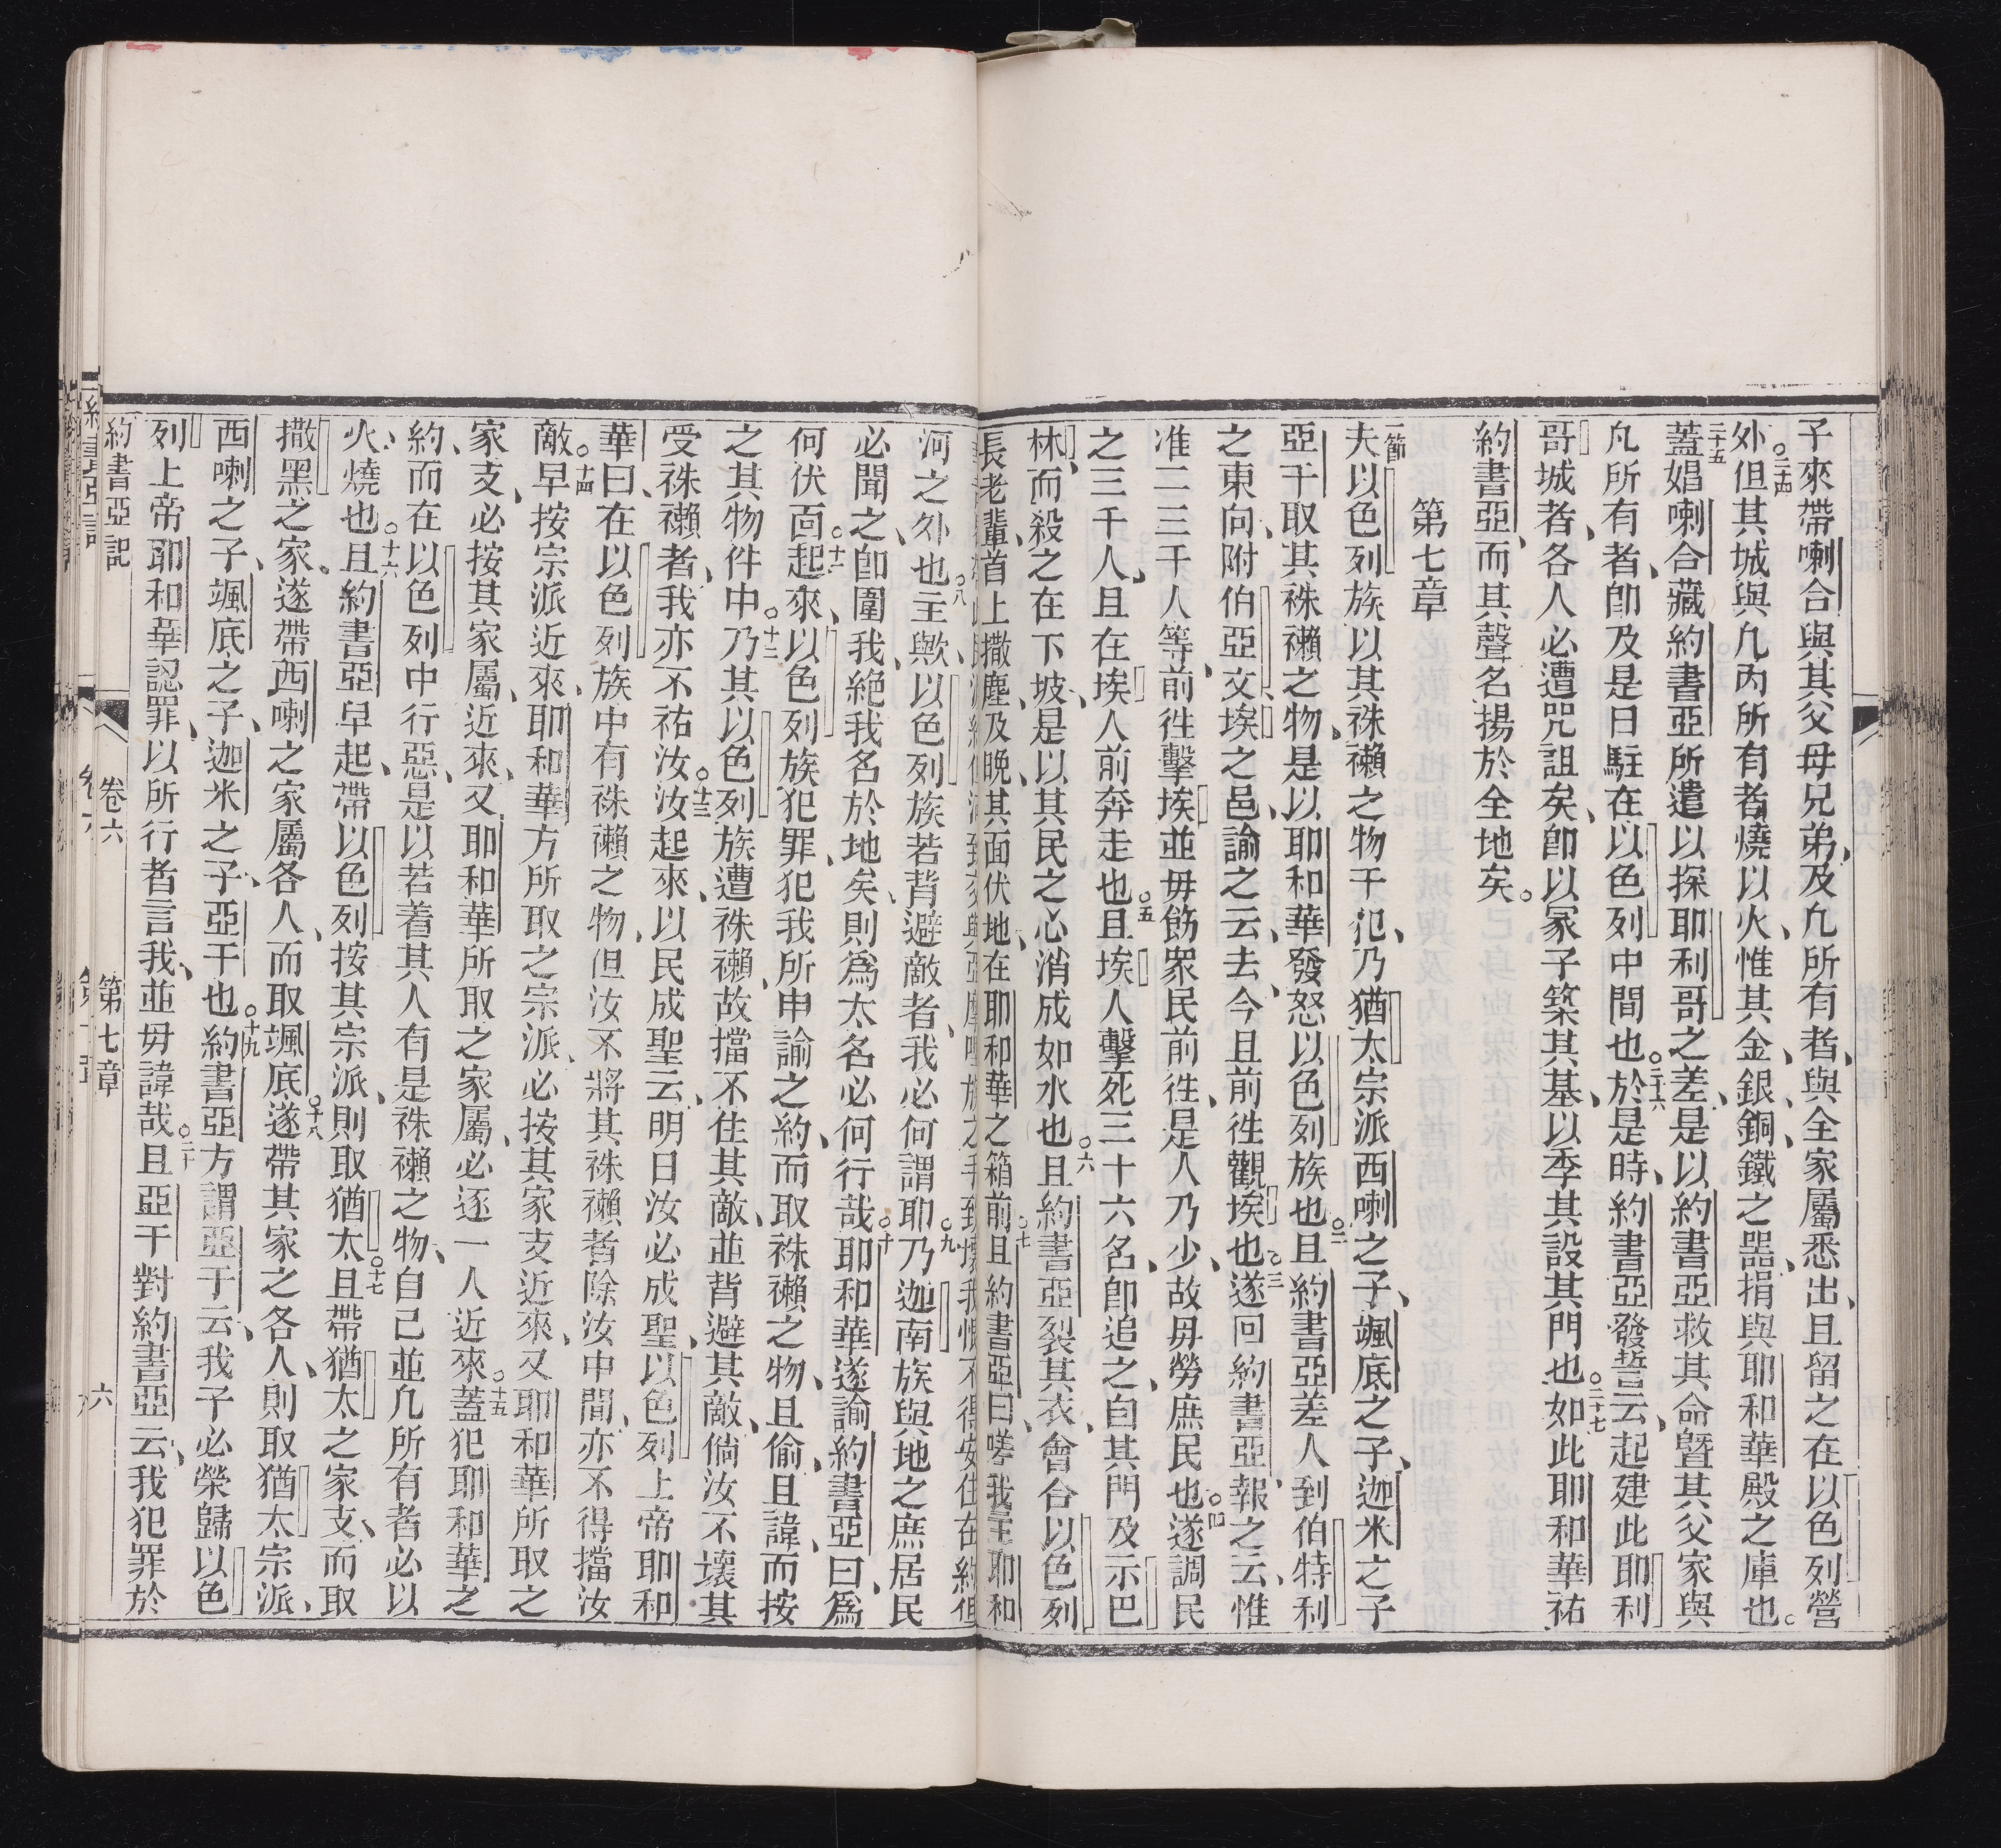 子來帶喇合與其父母兄弟、及凢所有者、與全家屬悉出、且留之在以色列營
外○二十四但其城與凢內所有者燒以火、惟其金、銀、銅、鐵之器、捐與耶和華殿之庫也。
二十五蓋娼喇合藏約書亞所遣以探耶利哥之差、是以約書亞救其命曁其父家與
凢所有者、卽及是日駐在以色列中間也○二十六於是時、約書亞發誓云、起建此耶利
哥城者、各人必遭咒詛矣、卽以冢子築其基、以季其設其門也○二十七如此耶和華祐
約書亞、而其聲名揚於全地矣。
第七章
一節夫以色列族以其袾襰之物干犯、乃猶太宗派西喇之子、颯底之子、迦米之子
亞干取其袾襰之物、是以耶和華發怒以色列族也○二且約書亞差人到伯特利
之東向、附伯亞文、埃之邑、諭之云、去、今且前徃觀埃也○三遂回約書亞報之云、惟
准二三千人等、前徃擊埃並毋飭衆民前徃、是人乃少、故毋勞庶民也○四遂調民
之三千人、且在埃人前奔走也○五且埃人擊死三十六名、卽追之、自其門及示巴
林、而殺之在下坡、是以其民之心消成如水也○六且約書亞裂其衣、會合以色列
長老輩、首上撒塵、及晚、其面伏地、在耶和華之箱前○七且約書亞曰、嗟我主耶和
河之外也○八主歟、以色列族若背避敵者、我必何謂耶○九乃迦南族與地之庶居民
必聞之、卽圍我、絕我名於地矣、則爲太名必何行哉○十耶和華遂諭約書亞曰、爲
何伏靣起來○十一以色列族犯罪、犯我所申諭之約、而取袾襰之物、且偷、且諱、而按
之其物件中○十二乃其以色列族遭袾襰、故擋不住其敵、並背避其敵、倘汝不壞其
受袾襰者、我亦不祐汝○十三汝起來、以民成聖云、明日汝必成聖、以色列上帝耶和
華曰、在以色列族中有袾襰之物、但汝不將其袾襰者除汝中間、亦不得擋汝
敵○十四早按宗派近來、耶和華方所取之宗派、必按其家支近來、又耶和華所取之
家支、必按其家屬、近來、又耶和華所取之家屬、必逐一人近來○十五蓋犯耶和華之
約、而在以色列中行惡、是以若着其人有是袾襰之物、自己並凢所有者必以
火燒也○十六且約書亞早起、帶以色列按其宗派、則取猶太○十七且帶猶太之家支、而取
撒黑之家。遂帶西喇之家屬各人、而取颯底○十八遂帶其家之各人、則取猶太宗派、
西喇之子、颯底之子、迦米之子、亞干也○十九約書亞方謂亞干云、我子必榮歸以色
列上帝耶和華認罪、以所行者言我、並毋諱哉○二十且亞干對約書亞云、我犯罪於
約書亞記 卷六 第七章 六